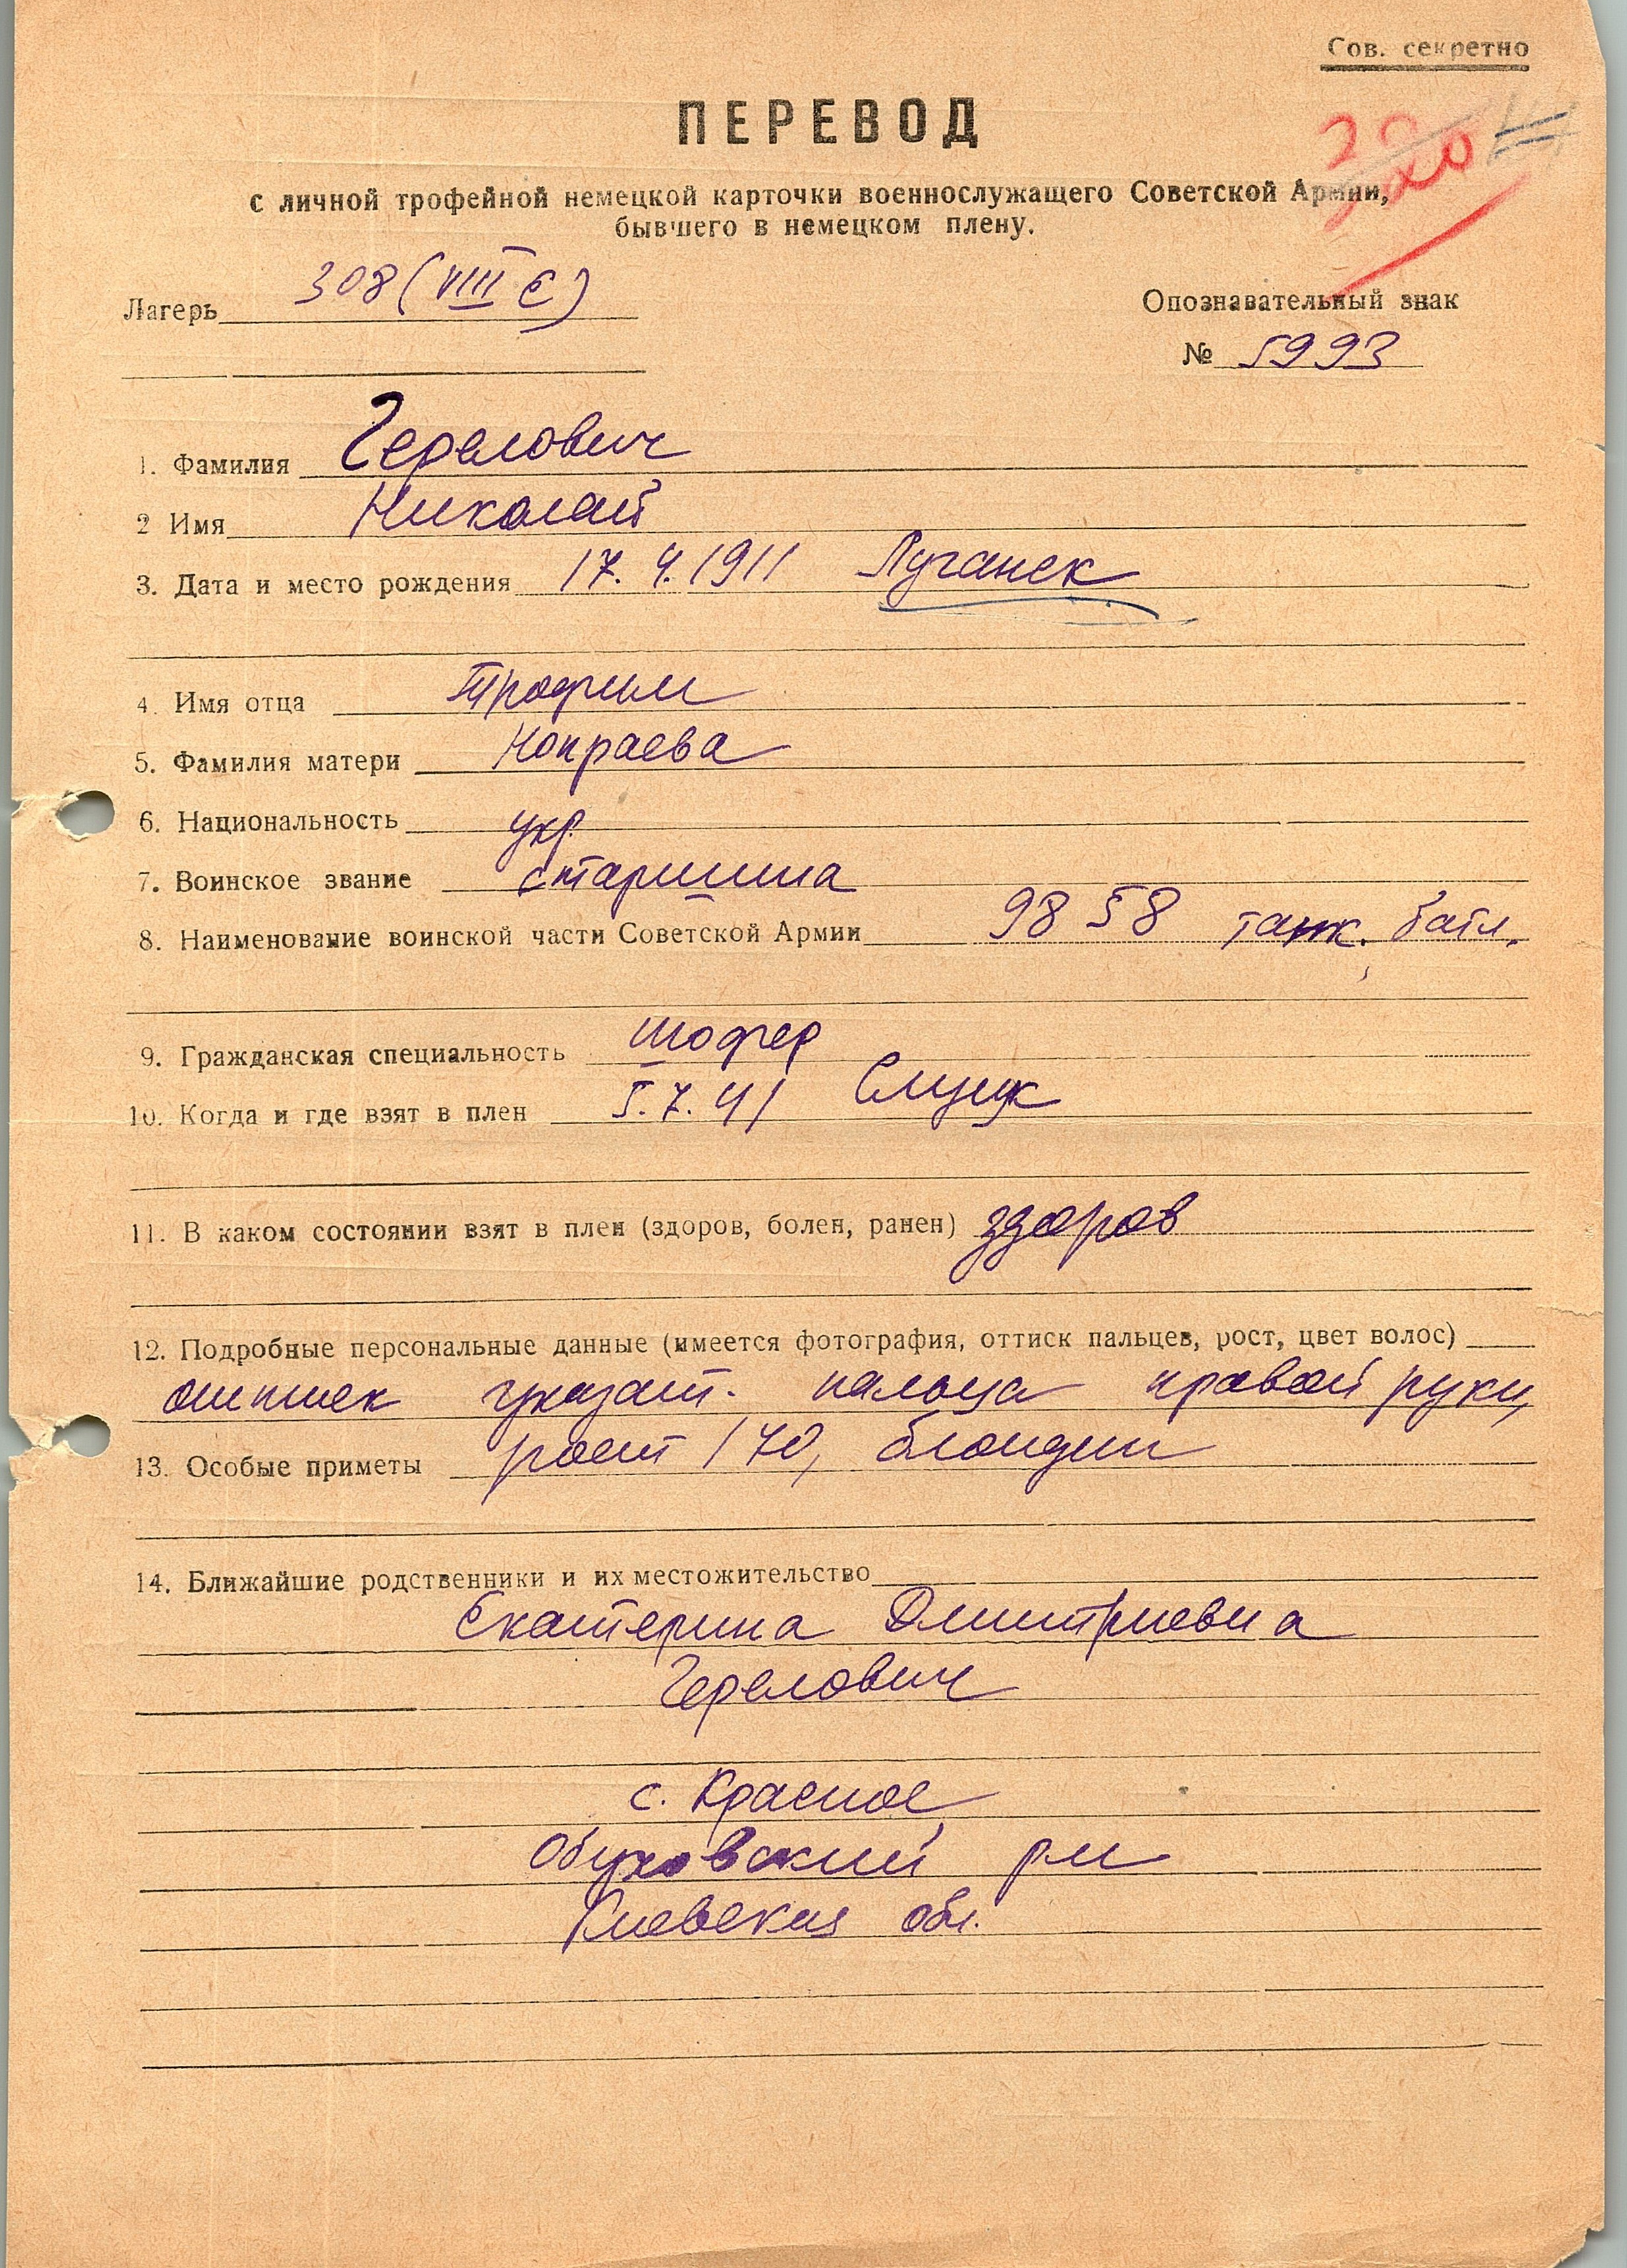 Сов. секретно
ПЕРЕВОД
с личной трофейной немецкой карточки военнослужащего Советской Армии,
бывшего в немецком плену.
Лагерь 308 (VIII E)
Опознавательный знак
№ 5993
1. Фамилия Герелович
2 Имя Николай
3. Дата и место рождения 17.4.1911 Луганск
4. Имя отца Трофим
5. Фамилия матери Нопраева
6. Национальность укр.
7. Воинское звание старшина
8. Наименование воинской части Советской Армии 9858 танк. батл.
9. Гражданская специальность шофер
10. Когда и где взят в плен 5.7.41 Слуцк
11. В каком состоянии взят в плен (здоров, болен, ранен) здоров
12. Подробные персональные данные (имеется фотография, оттиск пальцев, рост, цвет волос)
оттиск указат. пальца правой руки,
13. Особые приметы рост 170, блондин
14. Ближайшие родственники и их местожительство
Екатерина Дмитриевна
Герелович
с. Красное
Обуховский р-н
Киевская обл.